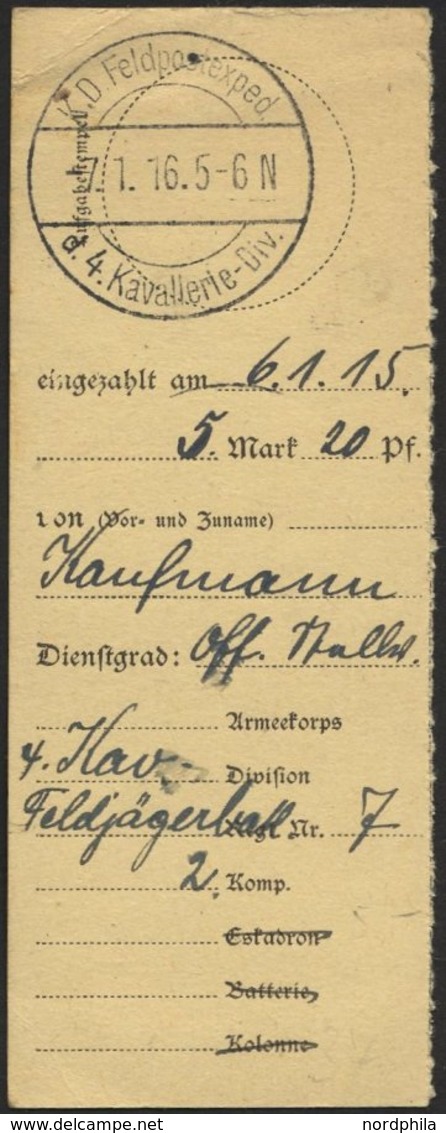 K.D Feldpostexped.
Aufgabestempel
7.1.16.5-6 N
d. 4. Kavallerie-Div.
eingezahlt am 6.1.15.
5. Mark 20 Pf.
von (Vor- und Zuname)
Kaufmann
Dienstgrad: Off. Stellv.
Armeekorps
4. Kav.- Division
Feldjägerbatl. Nr. 7
2. Komp.
Eskadron
Batterie
Kolonne
nordphila